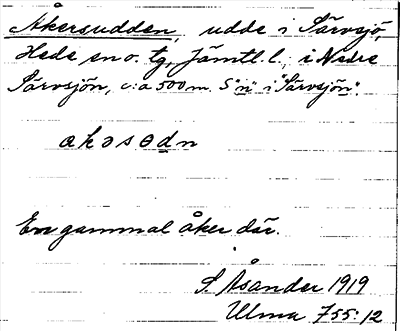 Åkersudden, udde i Särvsjö,
Hede sn o. tg, Jämtl. l., i Nedre
Särvsjön, c:a 500 m. S "n" i "Särvsjön".
akəsədn
En gammal åker där.
S. Åsander 1919
Ulma 755:12